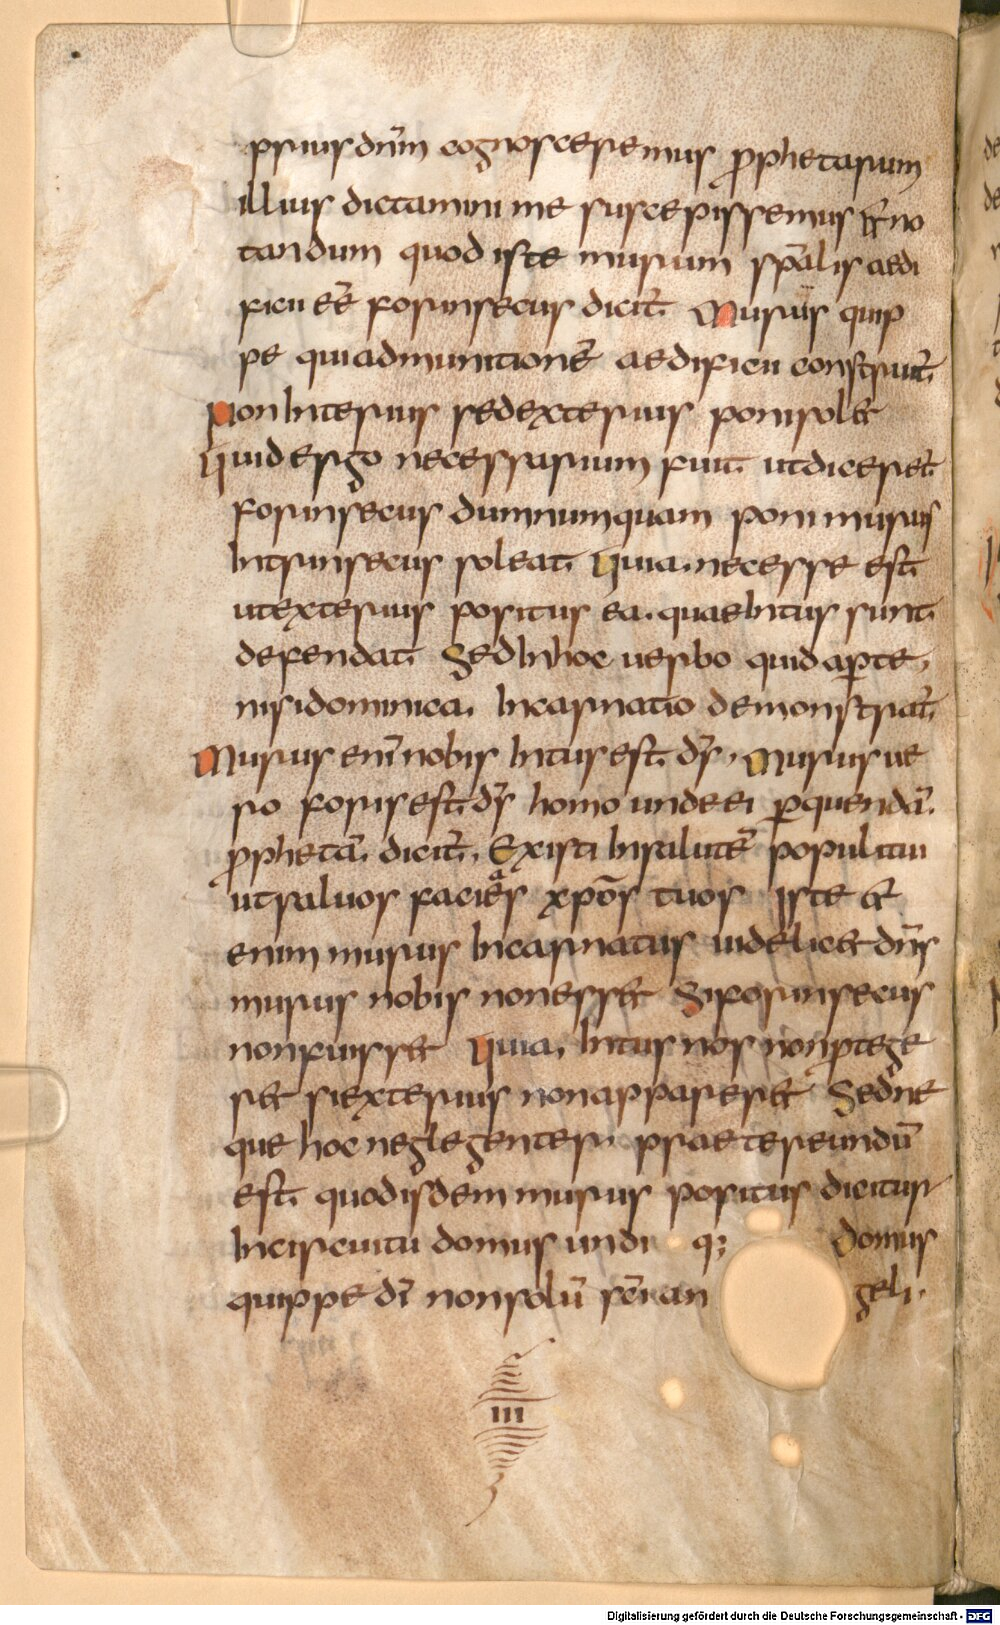 prius dnm̄ cognosceremus p̄phetarum
illius dictamini me suscepissemus & no
tandum quod iste murum sp̄alis aedi
ficii eē forinsecus dicit̄ Murus quip
pe qui ad munitionē aedificii construit̄
Non interius sed exterius poni sol&
Quid ergo necessarium fuit ut diceret̄
forinsecus dum numquam poni murus
intrinsecus soleat. Quia necesse est
ut exterius positus ea. quae intus sunt
defendat Sed in hoc uerbo quid aperte,
nisi dominica. incarnatio demonstrat̄
Murus enī nobis intus est. dr̄s. Murus ue
ro foris est. dr̄s homo unde ei p̱ quendā.
p̄phetā. dicit̄. Existi in salutē populi tui
ut saluos facias xp̄os tuos Iste &
enim murus incarnatus uidelic& dn̄s
murus nobis non ess& Si forinsecus
non fuiss& Quia. intus nos non p̄tege
r& si exterius non apparer& Sed ne
que hoc neglegenter praetereundū
est. quod isdem murus positus dicitur
in circuitu domus undiq; domus
quippe dī non solū sc̄i angeli.
III
Digitalisierung gefördert durch die Deutsche Forschungsgemeinschaft - DFG